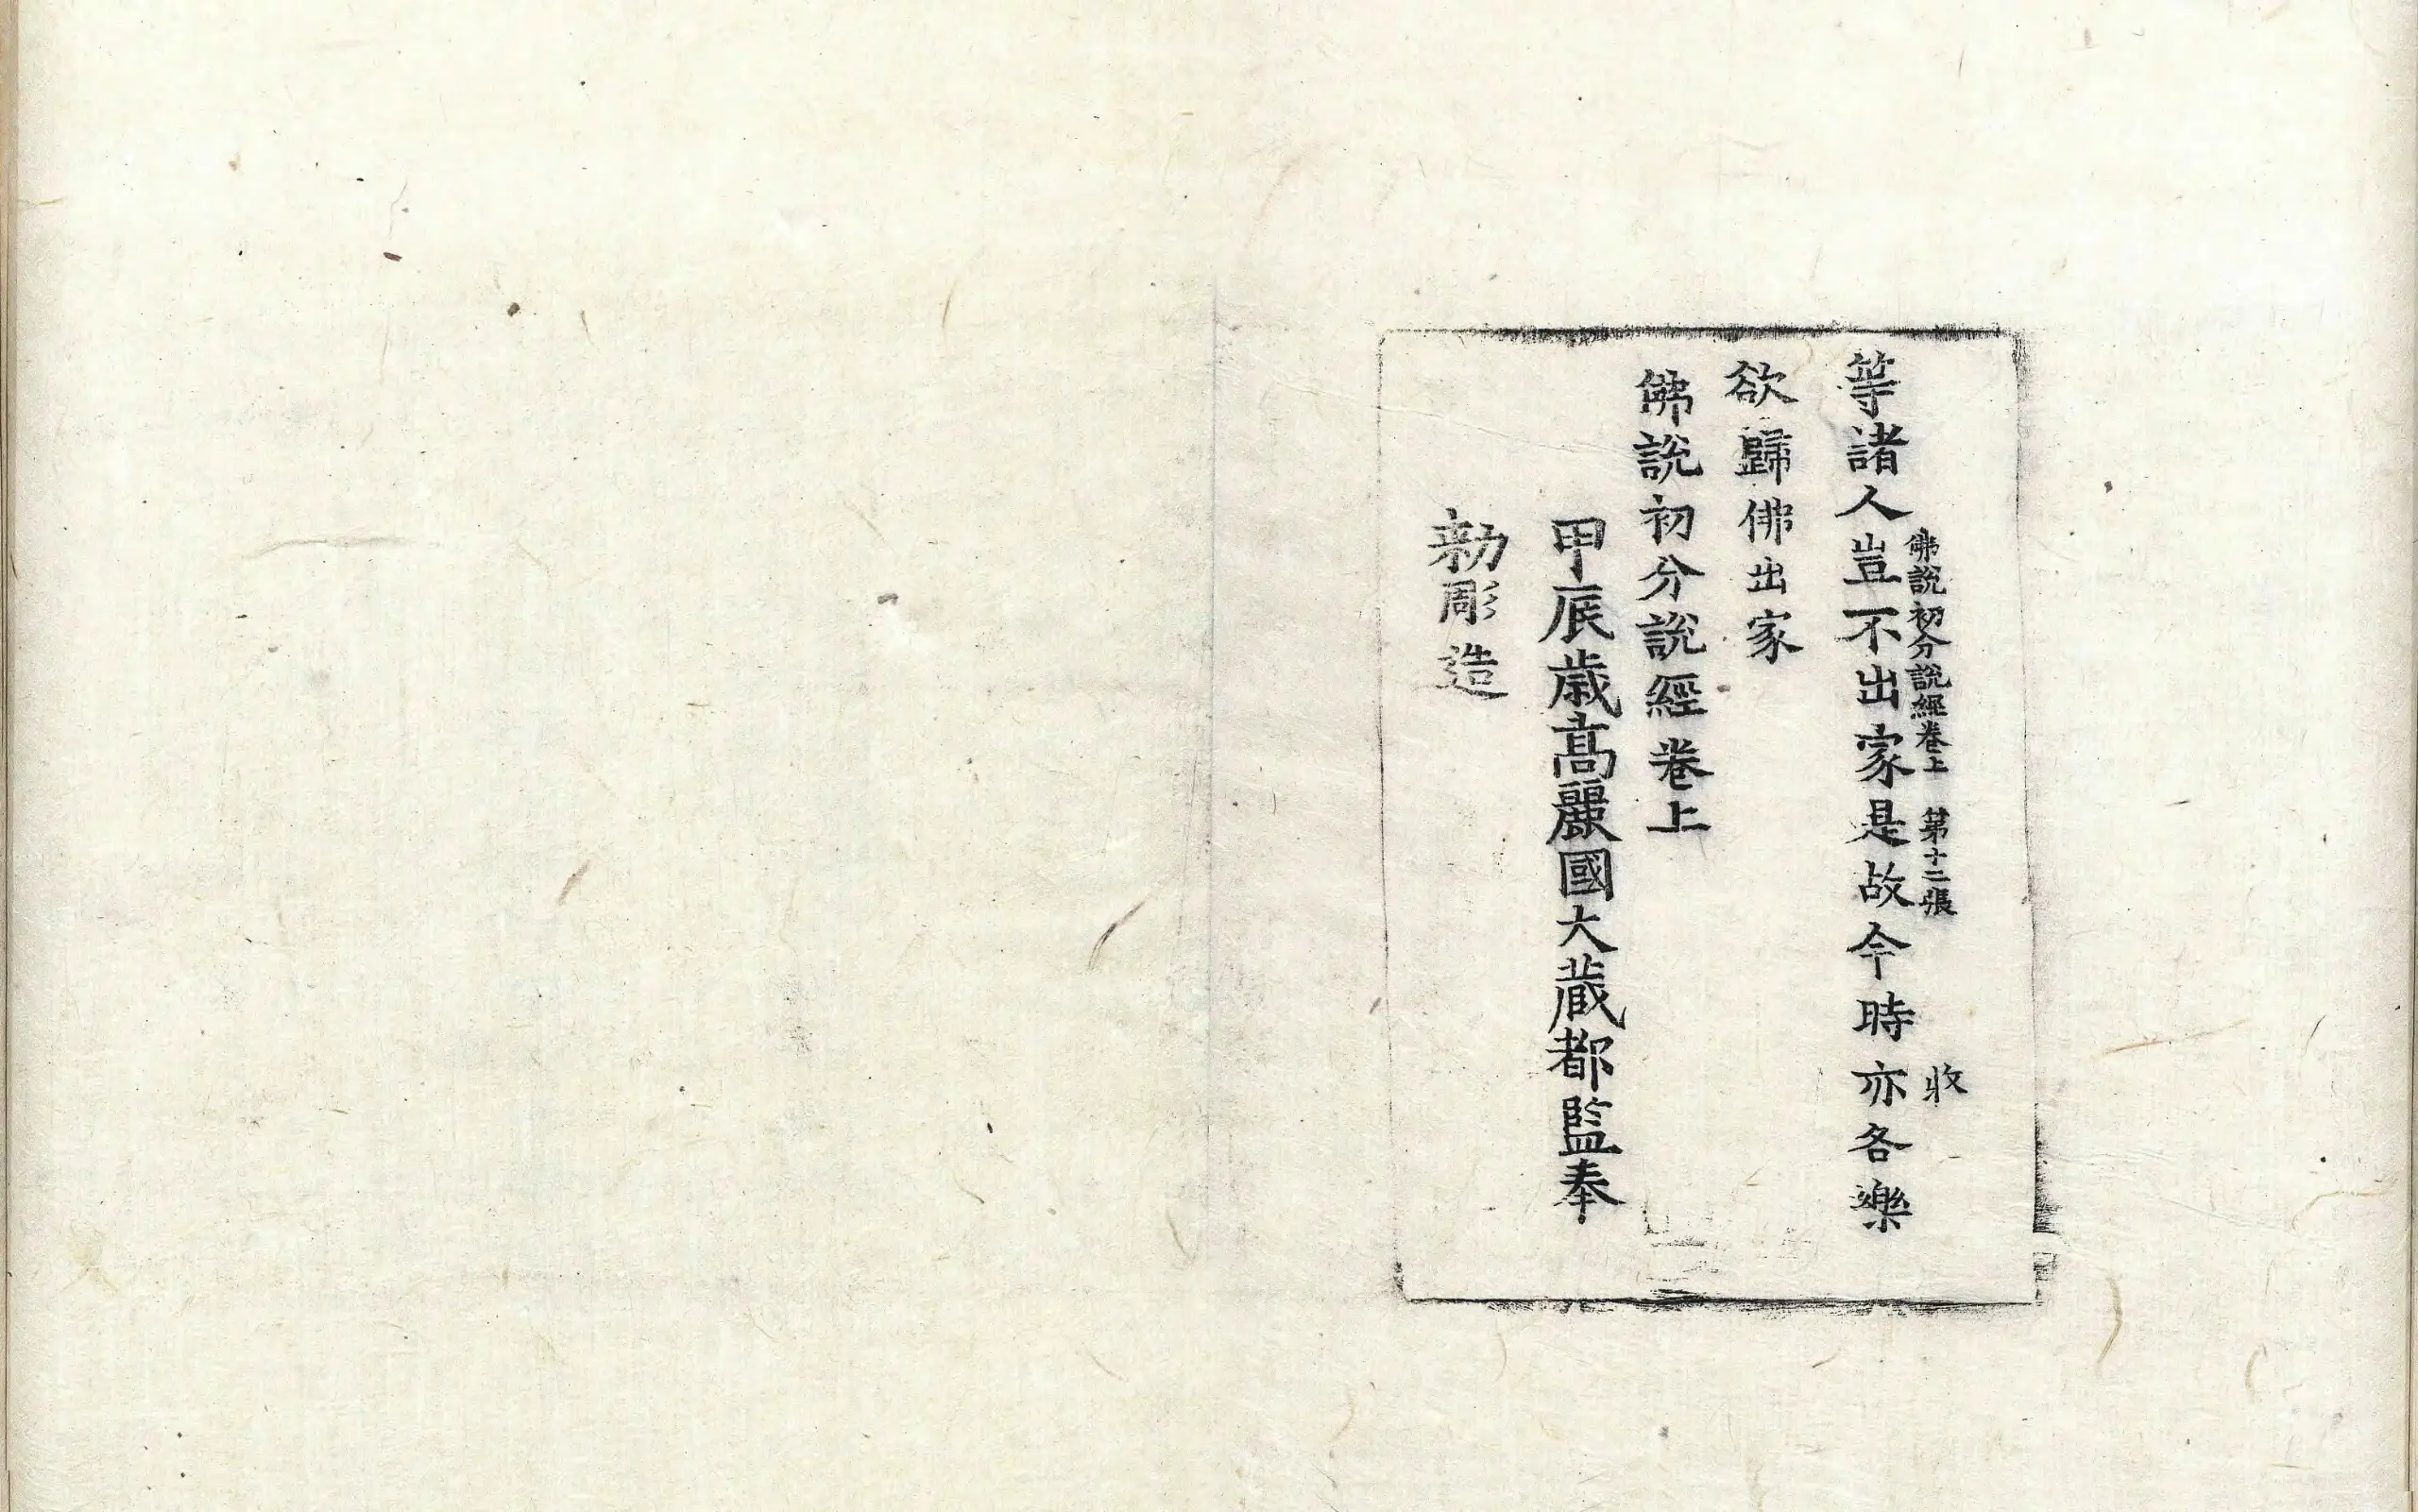 佛說初分說經卷上　第十二張　收
等諸人豈不出家是故今時亦各樂
欲歸佛出家
佛說初分說經卷上
甲辰歲高麗國大藏都監奉
勅彫造